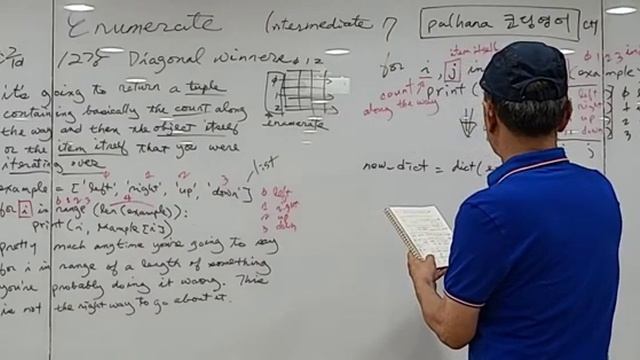 Enumerate (Intermediate 7) palhana 코딩영어
1278 Diagonal winners
it's going to return a tuple
containing basically the count along
the way and then the object itself
or the item itself that you were
iterating over
0 1 2
enumerate
list
0 1 2 3
example = ['left', 'right', 'up', 'down']
0 1 2 3 4
for i in range (len(example)):
print(i, example[i])
0 left
1 right
2 up
3 down
pretty much anytime you're going to say
for i in range of a length of something
you're probably doing it wrong. This
is not the right way to go about it.
item itself
0 1 2 3
for i, j in
count
along the way
print (
left
right
up
down
0
1
2
3
j
new_dict = dict(